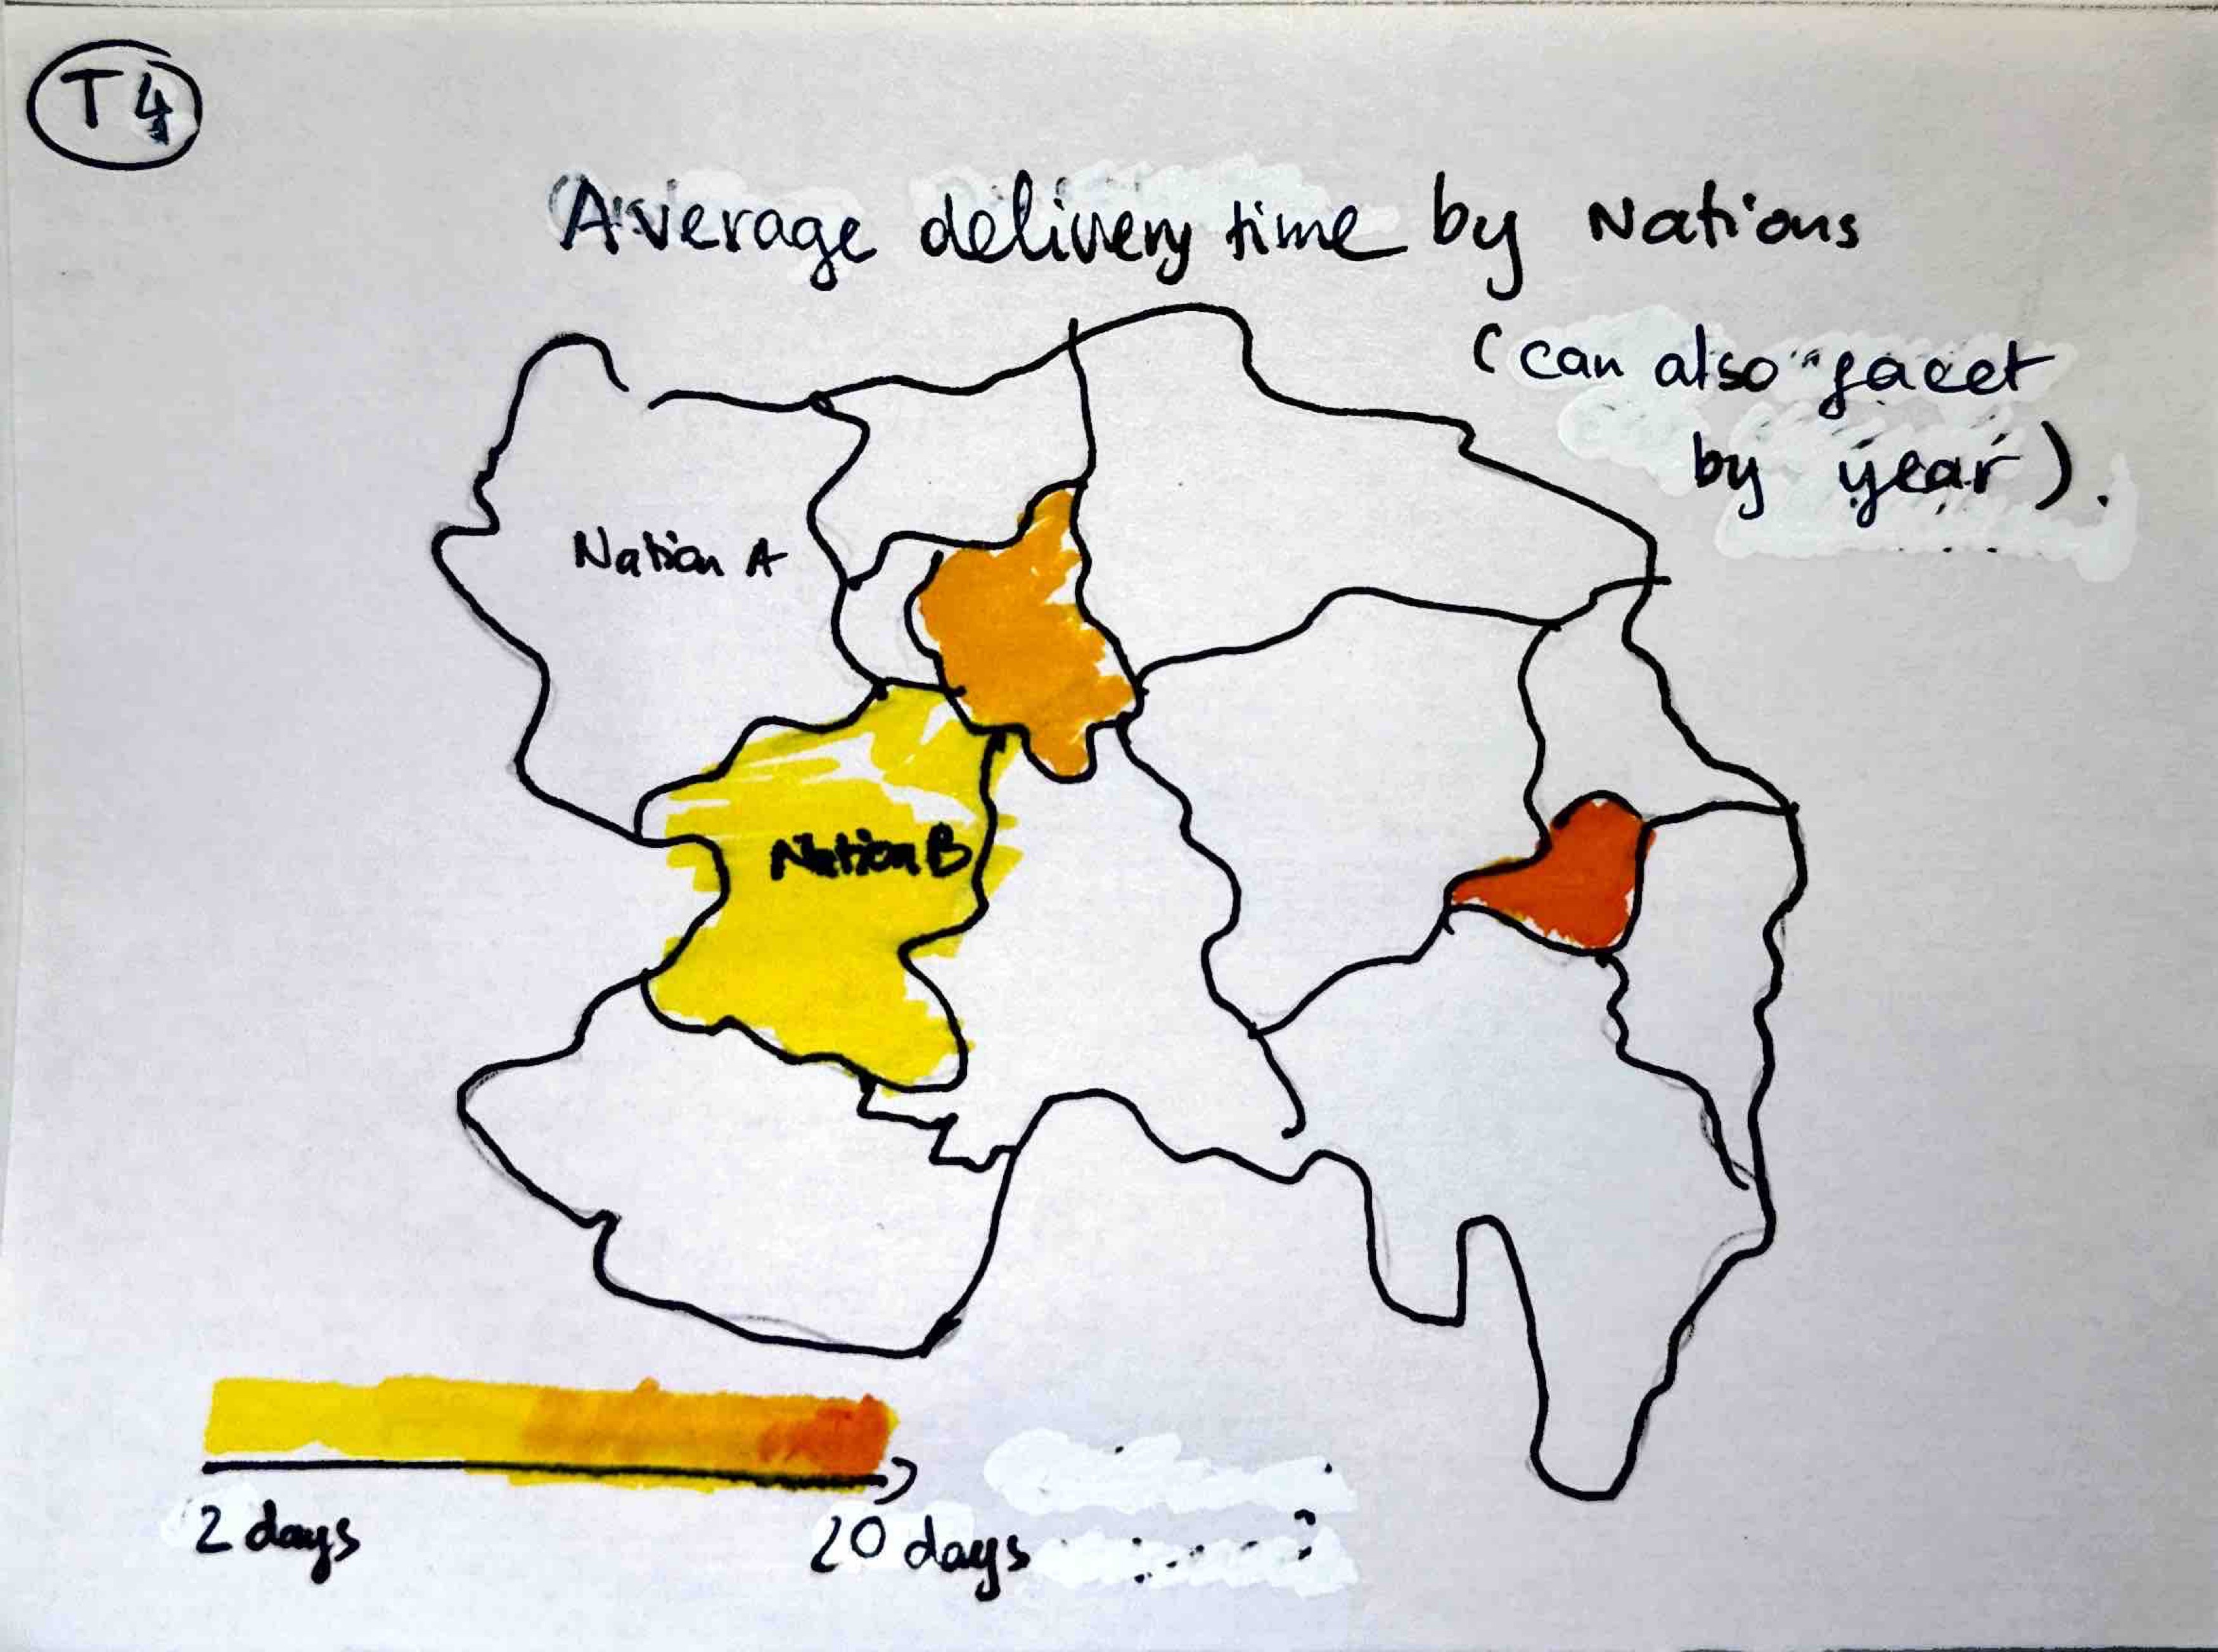 T4
Average delivery time by Nations
(can also facet
by year).
Nation A
Nation B
2 days
20 days